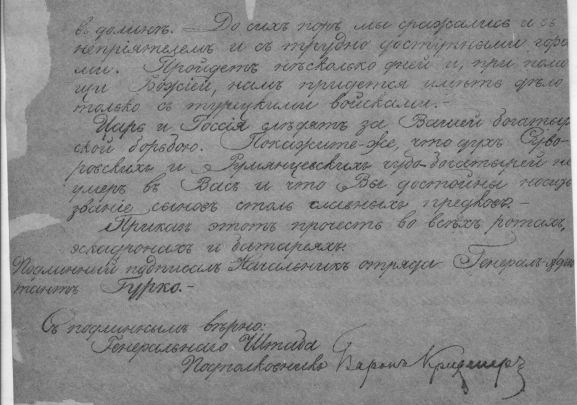 въ долинѣ. До сихъ поръ мы сражались и съ
непріятелемъ и съ трудно доступными гора
ми. Пройдетъ нѣсколько дней и, при помо
щи Божіей, намъ придется имѣть дѣло
только съ турецкими войсками.-
Царь и Россія слѣдятъ за Вашей богатыр
ской борьбою. Покажите-же, что духъ Суво
ровскихъ и Румянцевскихъ чудо-богатырей не
умеръ въ Васъ и что Вы достойны носить
званіе сыновъ столь славныхъ предковъ.-
Приказъ этотъ прочесть во всѣхъ ротахъ,
эскадронахъ и батареяхъ.
Подлинный подписалъ Начальникъ отряда Генералъ-Адъю
тантъ Гурко.-
Съ подлиннымъ вѣрно:
Генеральнаго Штаба
Подполковникъ Баронъ Криденеръ